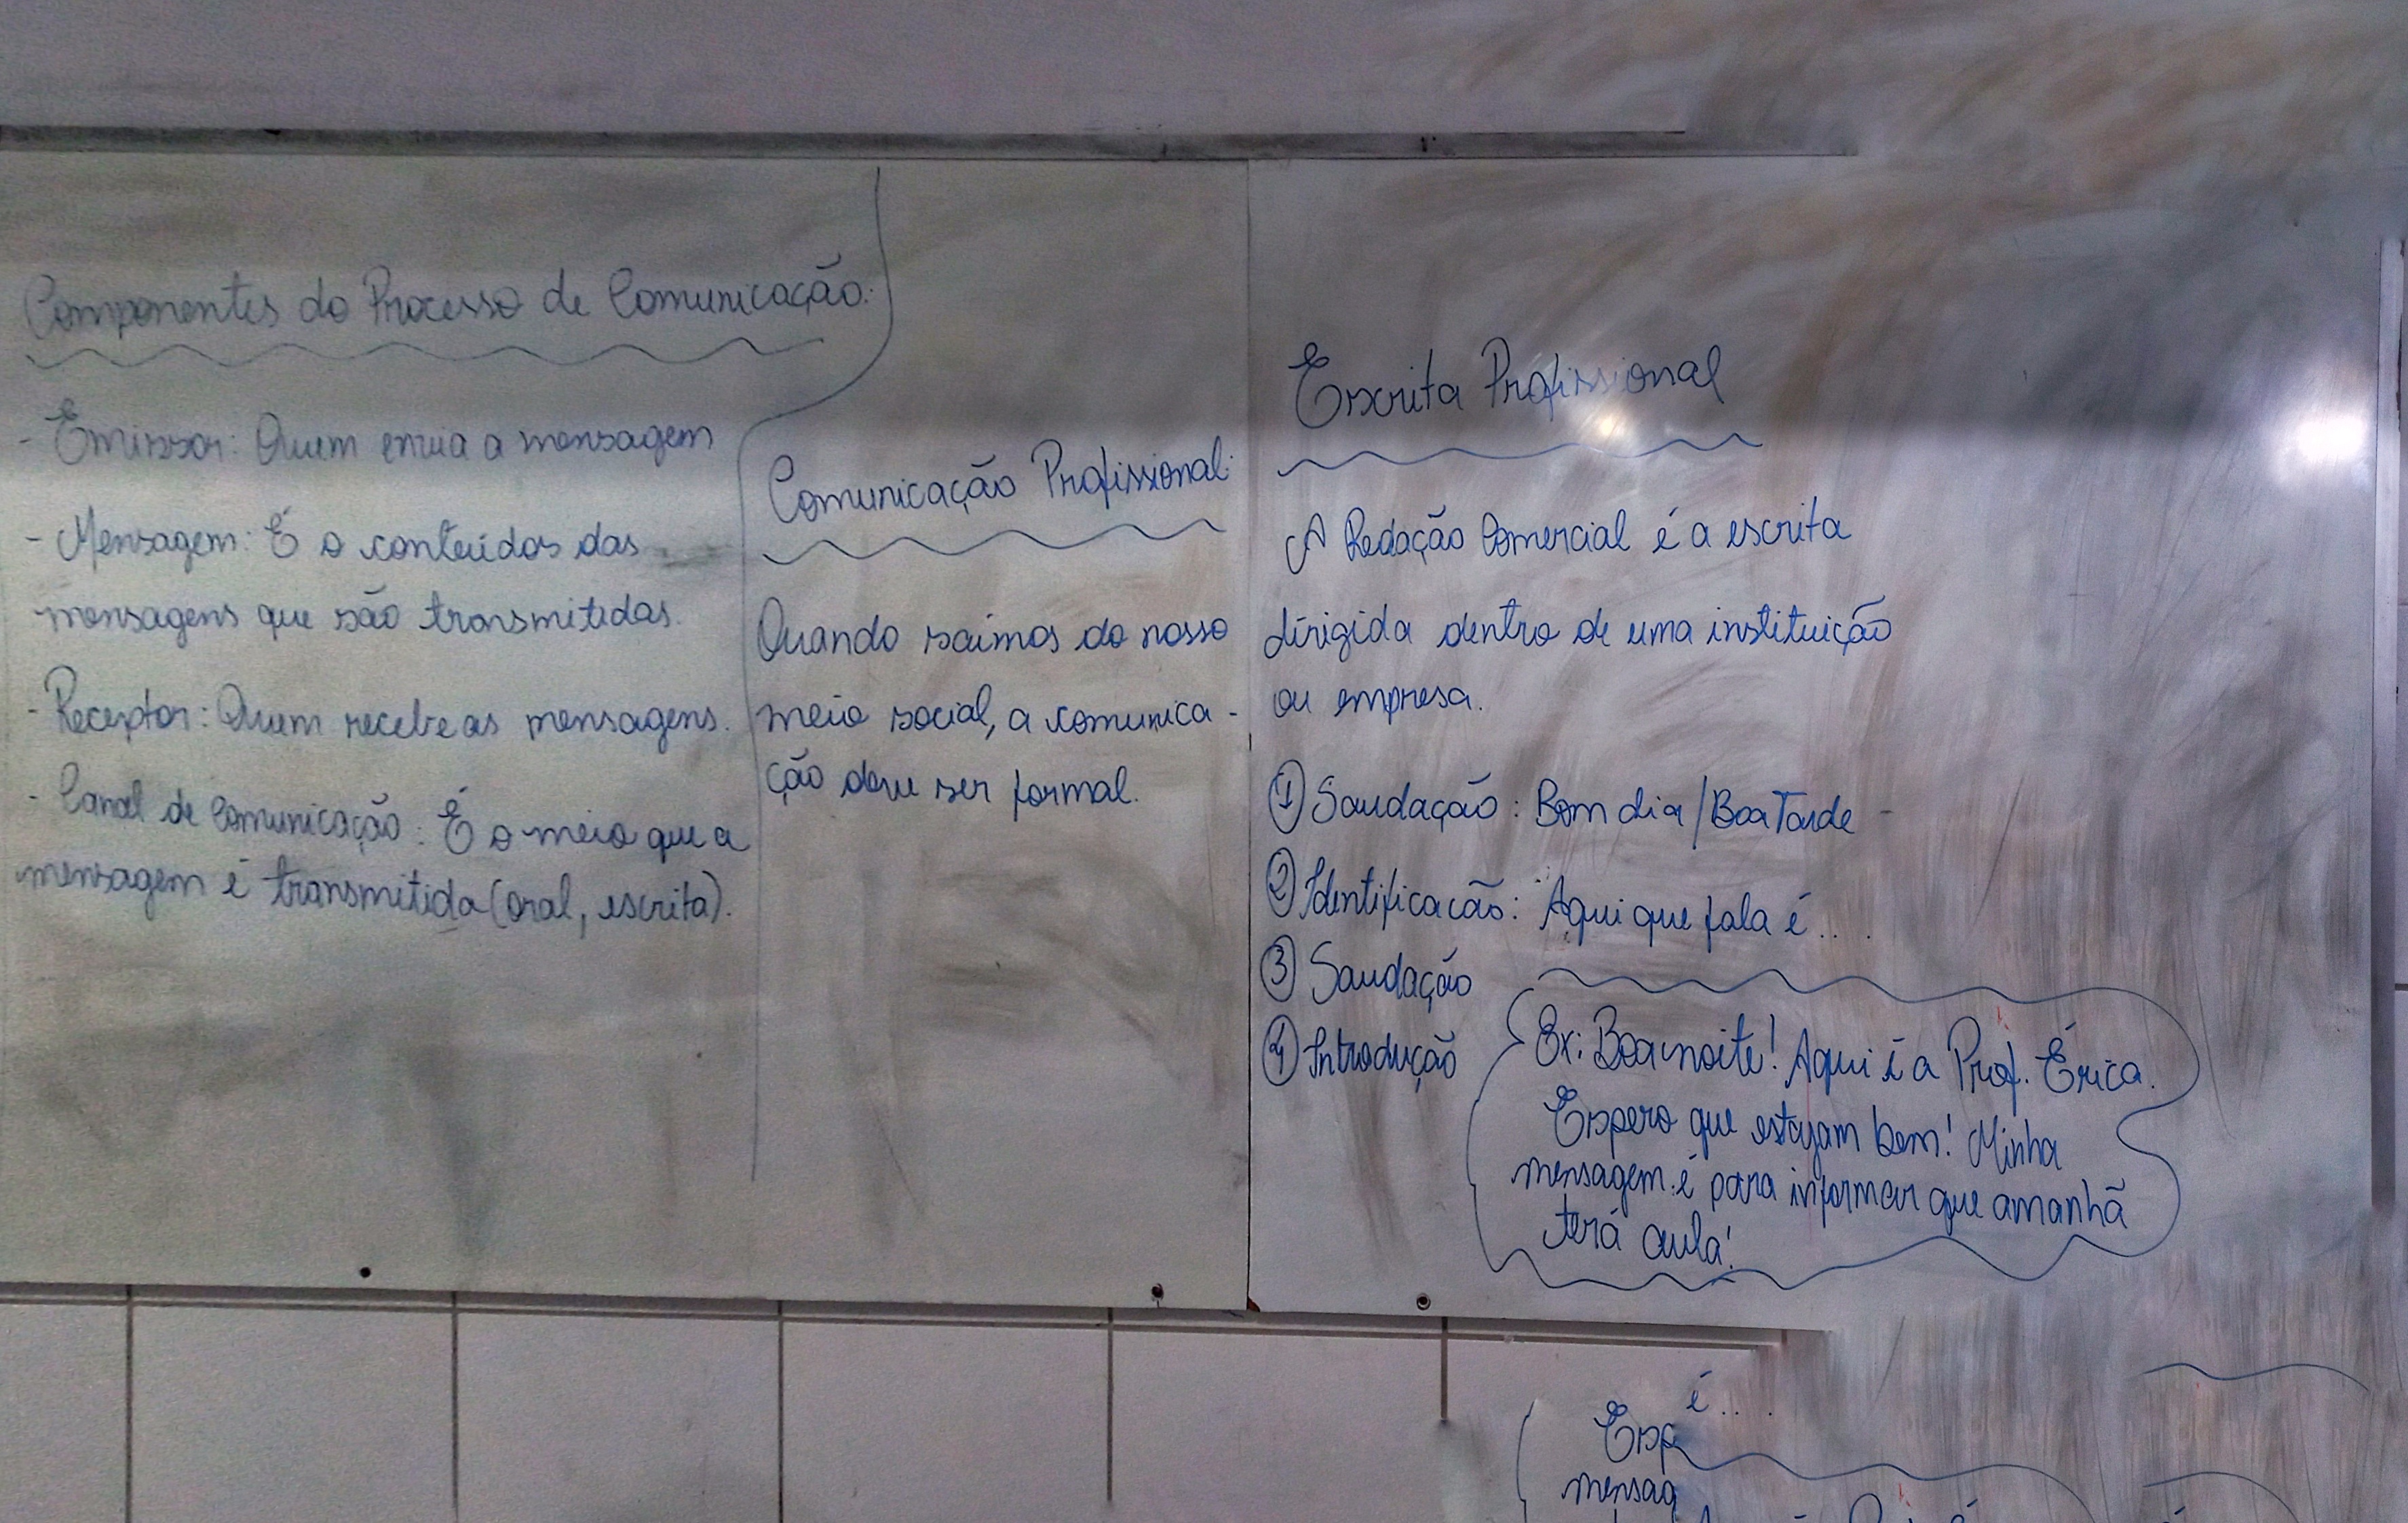 Componentes do Processo de Comunicação:
- Emissor: Quem envia a mensagem
- Mensagem: É o conteúdos das
mensagens que são transmitidas.
- Receptor: Quem recebe as mensagens.
- Canal de Comunicação: É o meio que a
mensagem é transmitida (oral, escrita).
Comunicação Profissional:
Quando saímos do nosso
meio social, a comunica-
ção deve ser formal.
Escrita Profissional
A Redação Comercial é a escrita
dirigida dentro de uma instituição
ou empresa.
① Saudação: Bom dia/Boa Tarde
② Identificacão: Aqui que fala é...
③ Saudação
④ Introdução
Ex: Boa noite! Aqui é a Prof. Érica.
Espero que estejam bem! Minha
mensagem é para informar que amanhã
terá aula!
é...
Esp
mensag